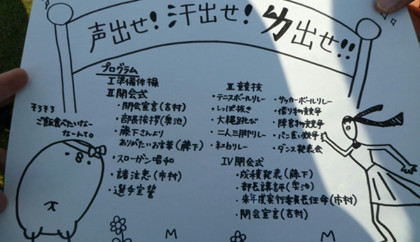 声出せ!汗出せ!力出せ!!
プログラム
Ⅰ 準備体操
Ⅱ 開会式
・開会宣言(吉村)
・部長挨拶(菊池)
・藤下さんより
ありがたいお言葉(藤下)
・スローガン唱和
・諸注意(市村)
・選手宣誓
Ⅲ 競技
・テニスボールリレー
・しっぽ抜き
・大縄跳び
・二人三脚リレー
・サッカーボールリレー
・借り物競争
・障害物競争
・パン食い競争
・ダンス発表会
Ⅳ 閉会式
・成績発表(藤下)
・部長講評(菊池)
・来年度実行委員長任命(市村)
・閉会宣言(吉村)
そろそろ
ご飯食べたいなー
なーんて。